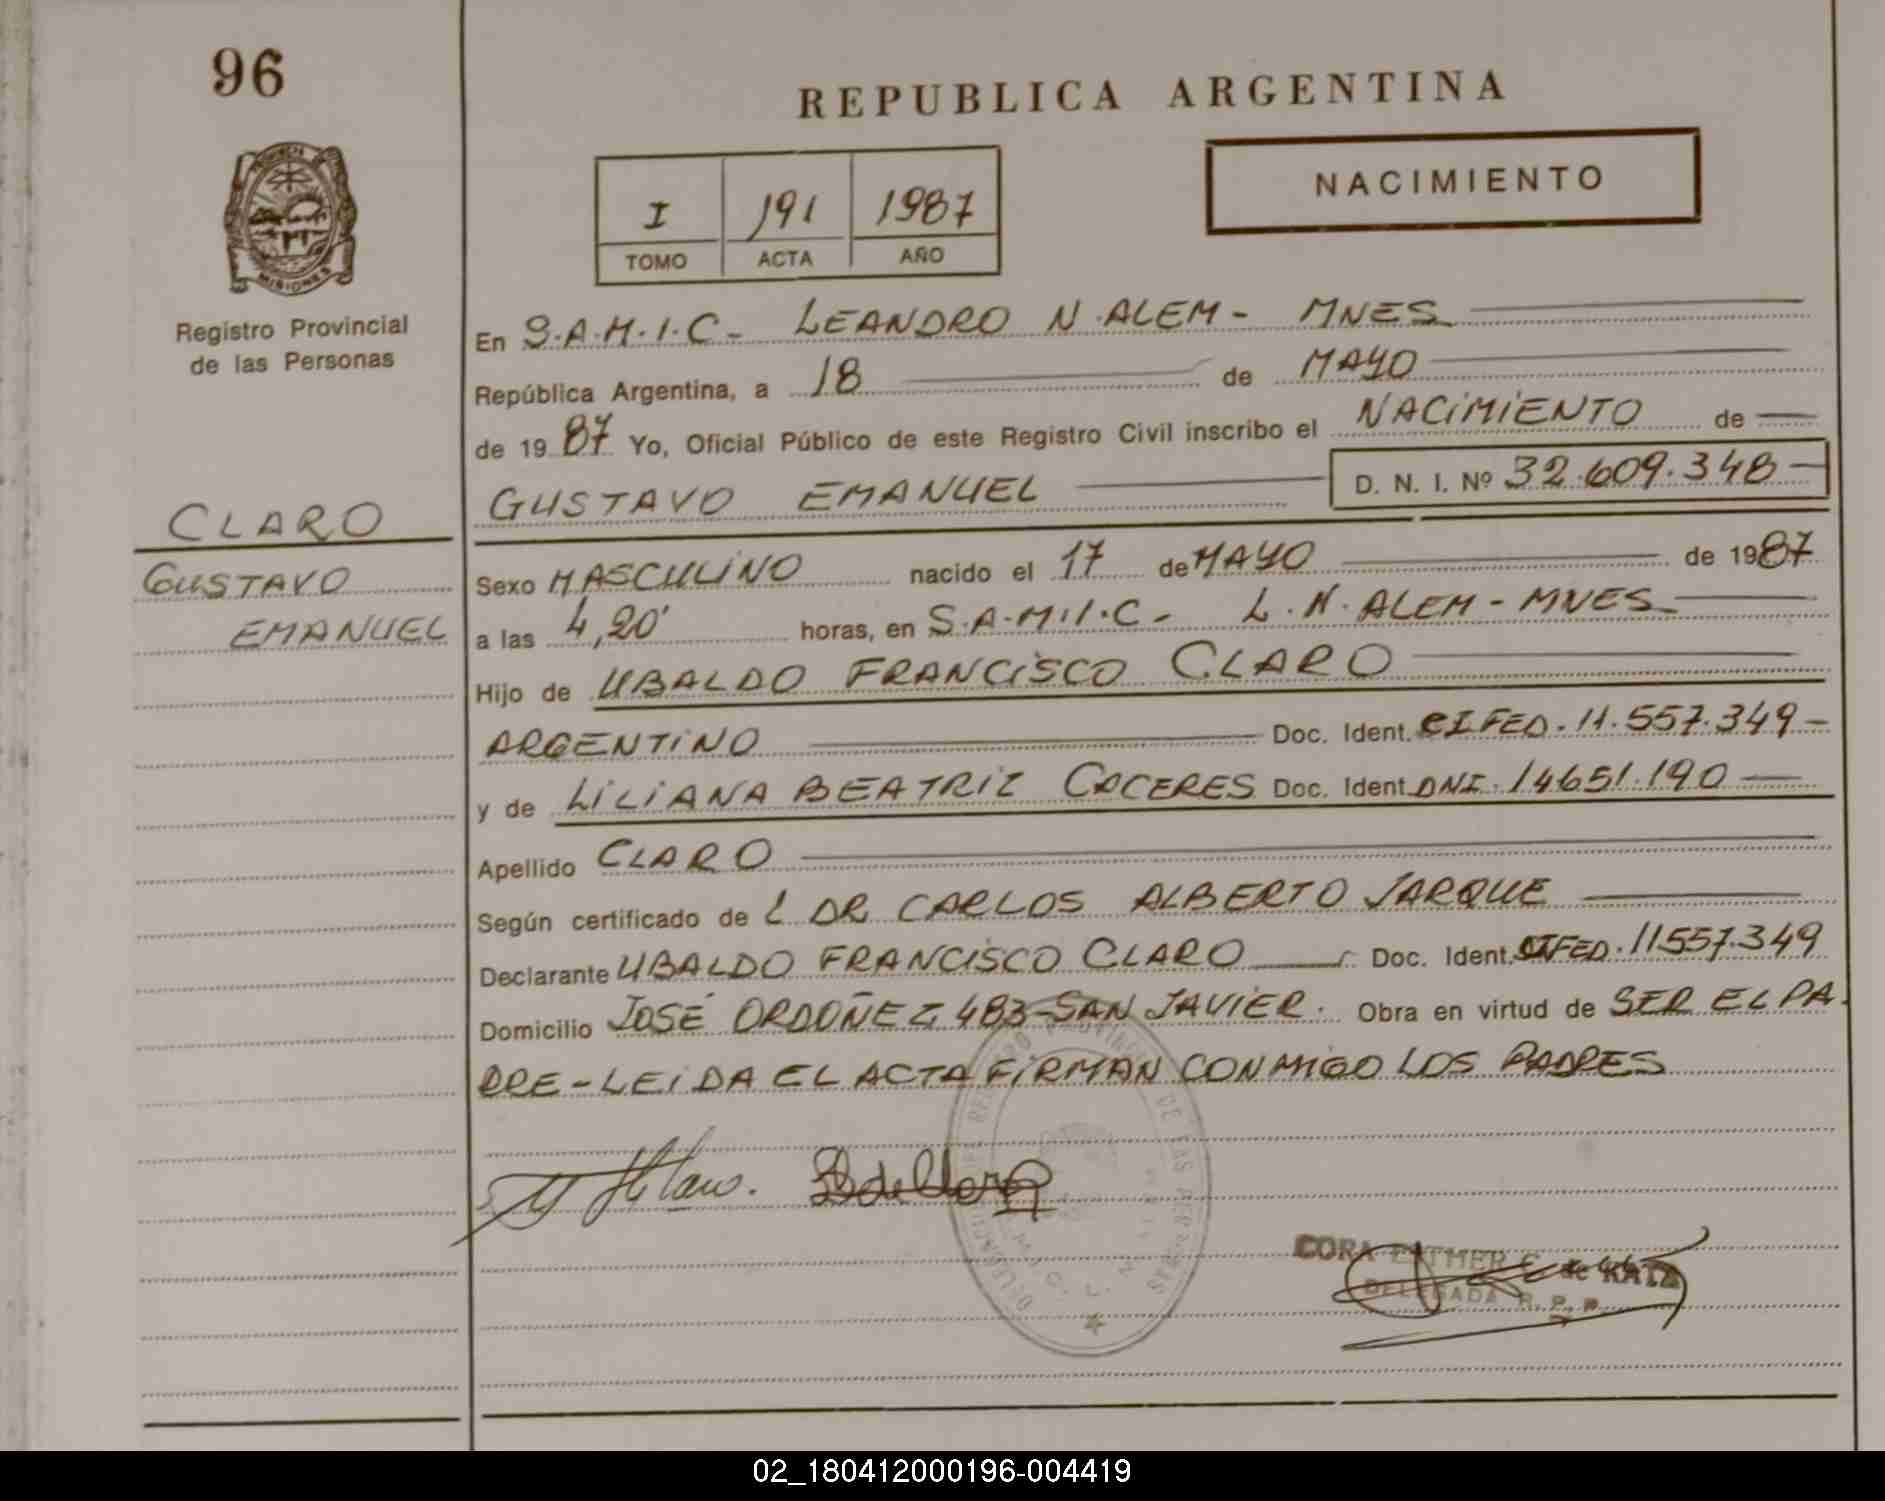 96
REPUBLICA ARGENTINA
NACIMIENTO
I 191 1987
TOMO ACTA AÑO
PROVINCIA
MISIONES
Registro Provincial
de las Personas
CLARO
GUSTAVO
EMANUEL
En S.A.M.I.C- LEANDRO N.ALEM- MNES
República Argentina, a 18 de MAYO
de 1987 Yo, Oficial Público de este Registro Civil inscribo el NACIMIENTO de
GUSTAVO EMANUEL D. N. I. Nº 32.609.348
Sexo MASCULINO nacido el 17 de MAYO de 1987
a las 4,20' horas, en S.A.M.I.C- L.N.ALEM-MNES
Hijo de UBALDO FRANCISCO CLARO
ARGENTINO Doc. Ident. CI FED. 11.557.349
y de LILIANA BEATRIZ CACERES Doc. Ident DNI. 14651.190
Apellido CLARO
Según certificado de L DR CARLOS ALBERTO JARQUE
Declarante UBALDO FRANCISCO CLARO Doc. Ident. CI FED. 11557.349
Domicilio JOSÉ ORDOÑEZ 483-SAN JAVIER. Obra en virtud de SER EL PA-
DRE-LEIDA EL ACTA FIRMAN CONMIGO LOS PADRES
CORA ESTHER
DELEGADA R. P. P.
02_180412000196-004419